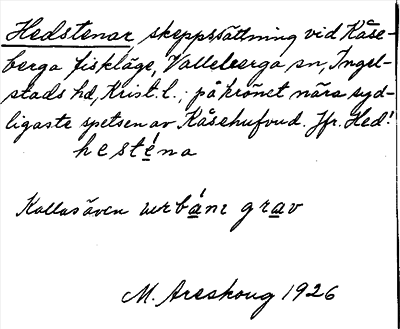 Hedstenar, skeppssättning vid Kåse-
berga fiskläge, Valleberga sn, Ingel-
stads hd, Krist. l.; på krönet nära syd-
ligaste spetsen av Kåsehufvud. Jfr. Hed!
hesténa
Kallas även urbáni grav
M. Areskoug 1926